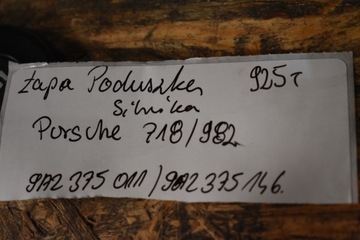 Łapa Poduszka 925T
Silnika
Porsche 718/982
9A2 375 011 / 982 375 146.